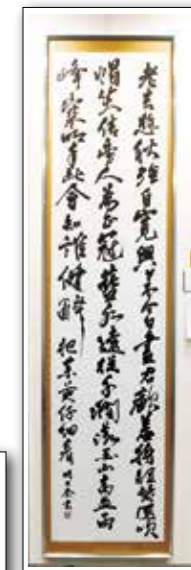 老去悲秋强自寬興来今日盡君歡羞将短髮還吹
帽笑倩傍人為正冠藍水遠從千澗落玉山高並兩
峰寒明年此會知誰健醉把茱萸仔細看